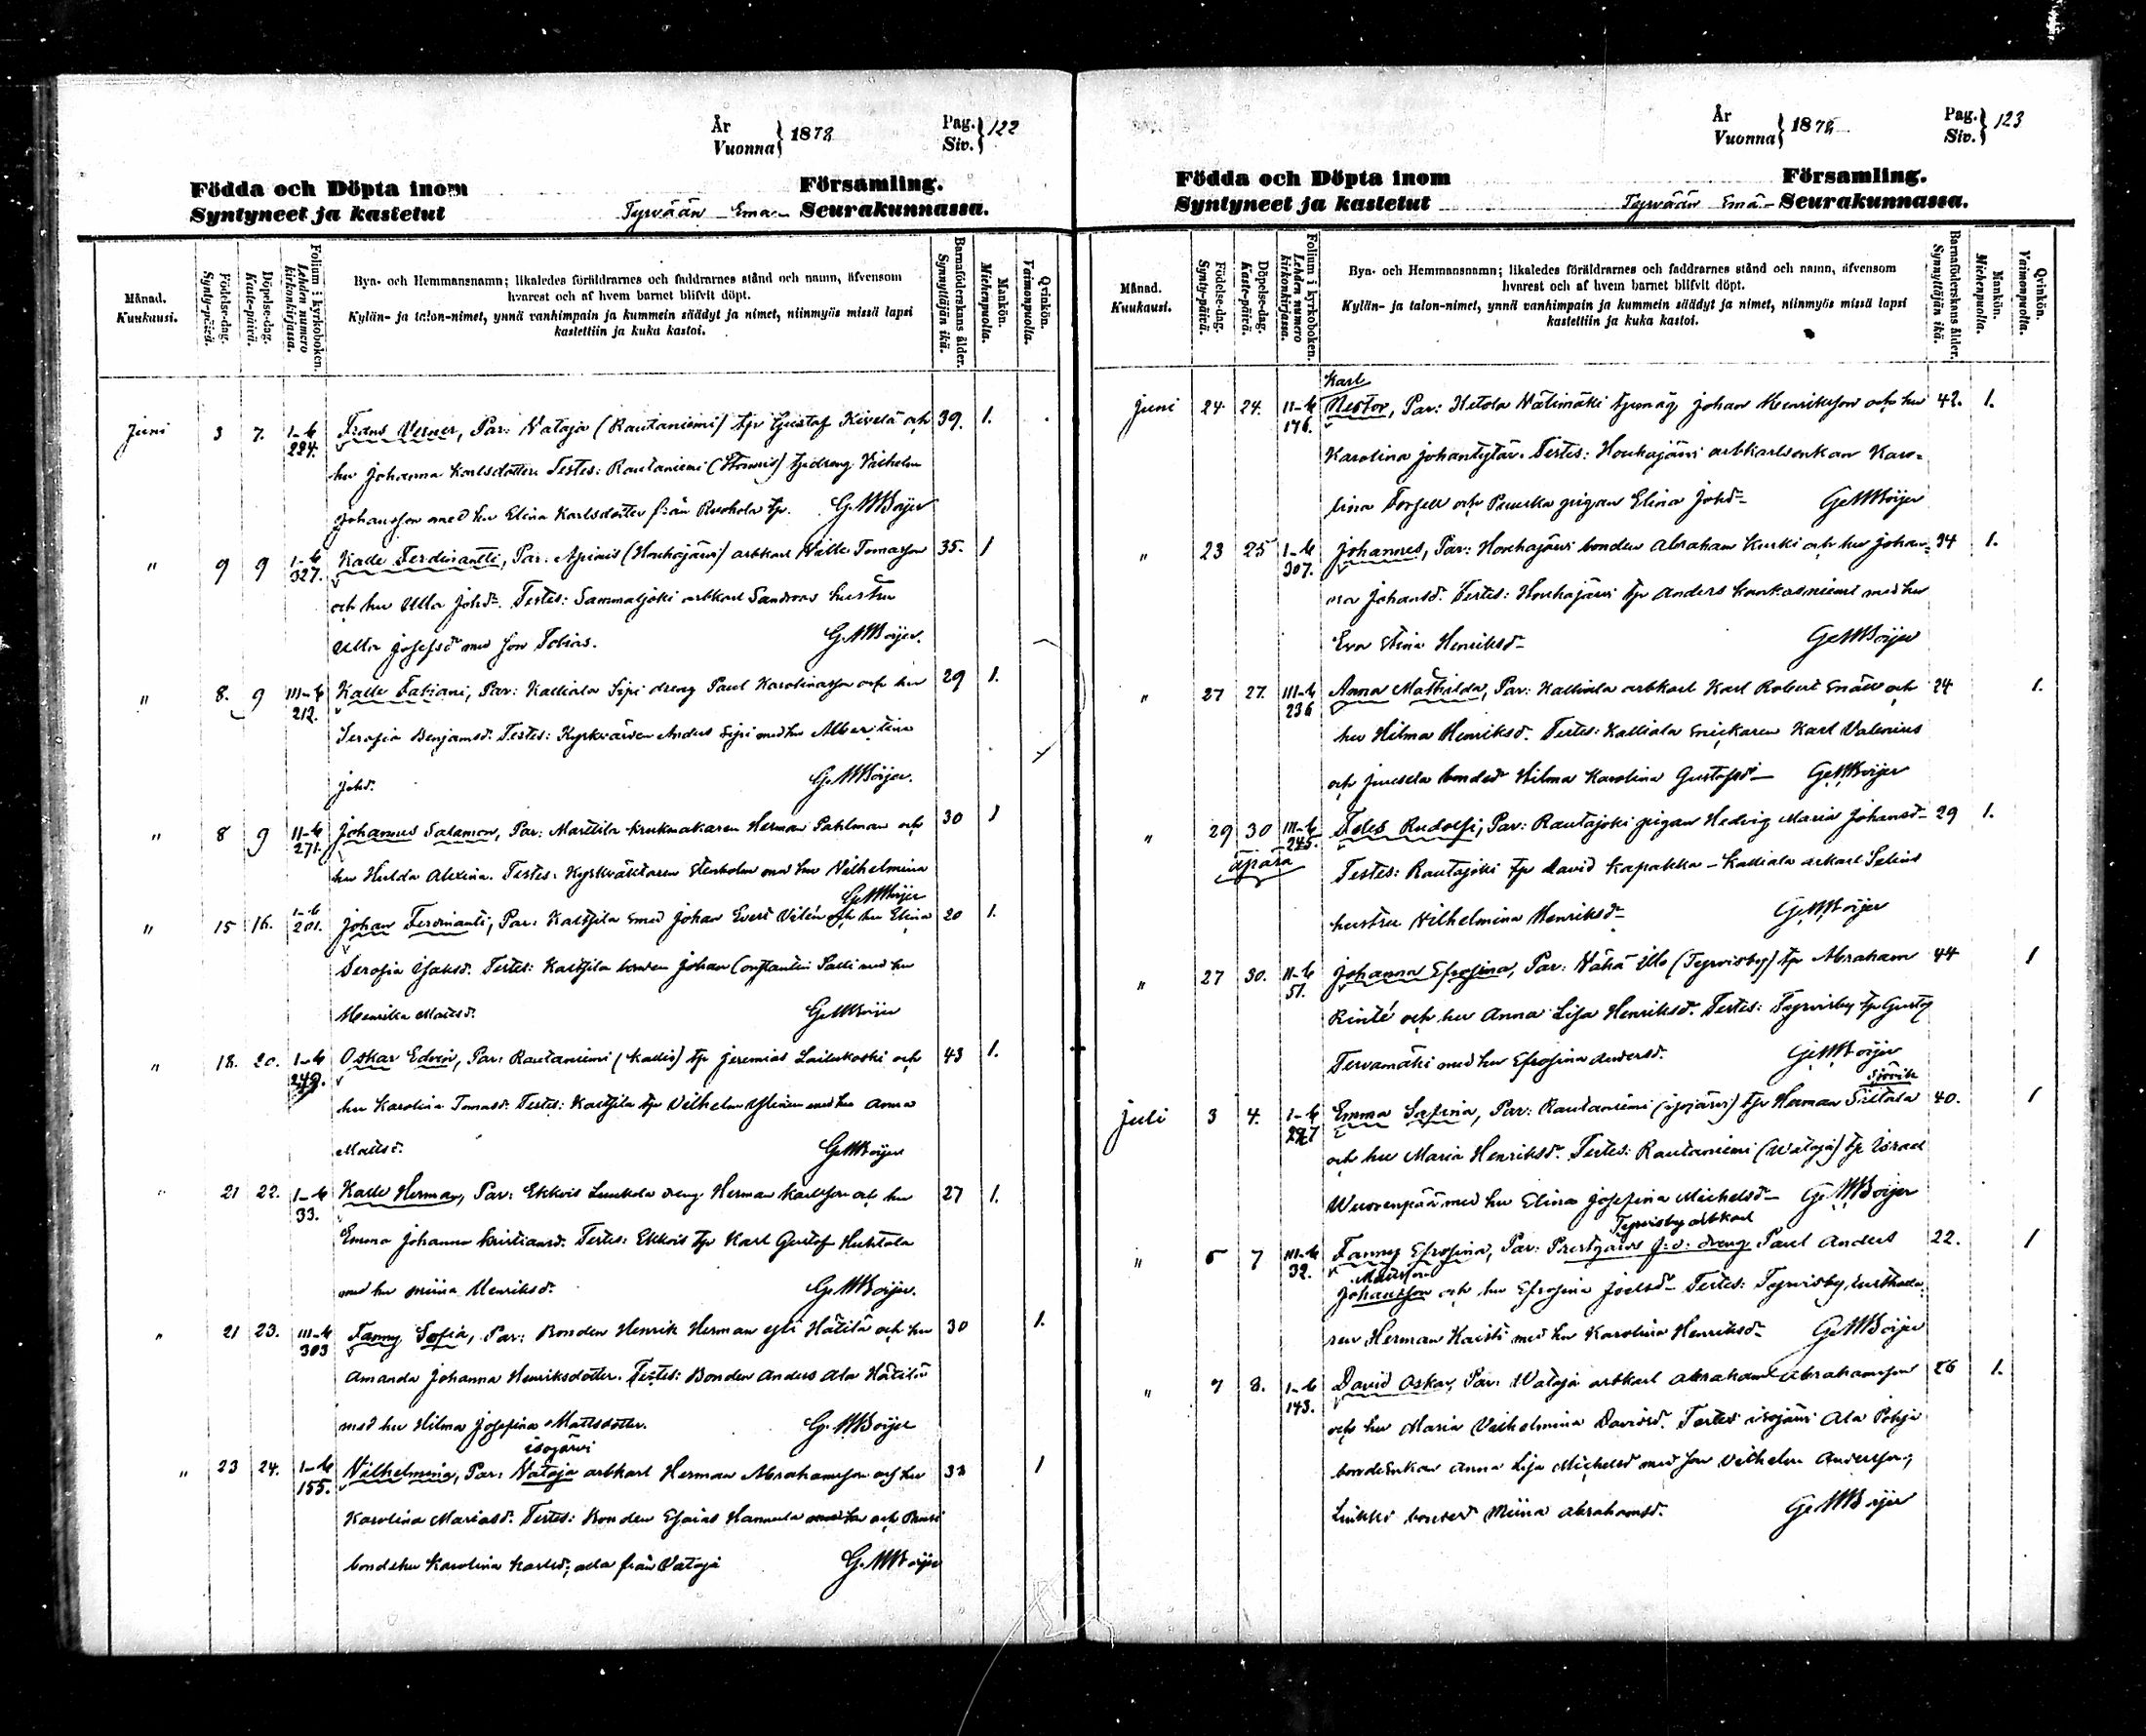 År
Vuonna } 1878
Pag.
Siv. } 122
Födda och Döpta inom Församling.
Syntyneet ja kastetut Tyrvään Emä- Seurakunnassa.
Månad.
Kuukausi.
Födelse-dag.
Synty-päivä.
Döpelse-dag.
Kaste-päivä.
Folium i kyrkoboken.
Lehden numero
kirkonkirjassa.
Bya- och Hemmansnamn; likaledes föräldrarnes och faddrarnes stånd och namn, äfvensom
hvarest och af hvem barnet blifvit döpt.
Kylän- ja talon-nimet, ynnä vanhimpain ja kummein säädyt ja nimet, niinmyös missä lapsi
kastettiin ja kuka kastoi.
Barnaföderskans ålder.
Synnyttäjän ikä.
Mankön.
Miehenpuolta.
Qvinkön.
Vaimonpuolta.
Juni 3 7. Frans Verner, Par: Vataja (Rautaniemi) tp Gustaf Kivelä och 39. 1.
284. hu Johanna Karlsdotter. Testes: Rautaniemi tpdreng Vilhelm
Johansson med hu Elina Karlsdotter från Ruohola tp. G. M Boijer
" 9 9 Kalle Ferdinantti, Par: Apinis (Houhajärvi) arbkarl Ville Tomasson 35. 1
327. och hu Ulla Johd. Testes: Sammaljoki arbkarl Sandroos hustru
Ulla Josefsd med son Tobias. G. M Boijer.
" 8. 9 Kalle Fabiani, Par: Kalliala Sipi dreng Paul Karolinasson och hu 29 1.
212. Serafia Benjamsd. Testes: Kyrkvärden Anders Sipi med hu Albertina
Johd. G. M Boijer.
" 8 9 Johannes Salamon, Par: Marttila krukmakaren Herman Pahlman och 30 1
271. hu Hulda Alexina. Testes: Kyrkväktaren Stenholm med hu Vilhelmina
G. M Boijer
" 15 16. 201. Johan Ferdinanti, Par: Kaltsila smed Johan Evert Vilén och hu Elina 20 1.
Serafia Isaksd. Testes: Kaltsila bonden Johan Constantin Salli med hu
Henrika Matsd. G. M Boijer
" 18. 20. Oskar Edvin, Par: Rautaniemi (Kallis) tp Jeremias Lailukoski och 43 1.
249. hu Karolina Tomasd. Testes: Kaltsila tp Vilhelm Ylinen med hu Anna
Mattsd. G. M Boijer
" 21 22. Kalle Herman, Par: Ekkois Luukola dreng Herman Karlsson och hu 27 1.
33. Emma Johanna Kristiansd. Testes: Ekkois tp Karl Gustof Huhtala
med hu Miina Henriksd. G. M Boijer.
" 21 23. Fanny Sofia, Par: Bonden Henrik Herman Yli Hätilä och hu 30 1.
303 Amanda Johanna Henriksdotter. Testes: Bonden Anders Ala Hätilä
med hu Hilma Josefina Mattsdotter. G. M Boijer
isojärvi
" 23 24. Vilhelmina, Par: Vataja arbkarl Herman Abrahamsson och hu 1
155. Karolina Mariasd. Testes: Bonden Esaias Hannula och
bondehu Karolina Karlsd; alla från Vataja G. M Boijer
År
Vuonna } 1878
Pag.
Siv. } 123
Födda och Döpta inom Församling.
Syntyneet ja kastetut Tyrvään Emä- Seurakunnassa.
Månad.
Kuukausi.
Födelse-dag.
Synty-päivä.
Döpelse-dag.
Kaste-päivä.
Folium i kyrkoboken.
Lehden numero
kirkonkirjassa.
Bya- och Hemmansnamn; likaledes föräldrarnes och faddrarnes stånd och namn, äfvensom
hvarest och af hvem barnet blifvit döpt.
Kylän- ja talon-nimet, ynnä vanhimpain ja kummein säädyt ja nimet, niinmyös missä lapsi
kastettiin ja kuka kastoi.
Barnaföderskans ålder.
Synnyttäjän ikä.
Mankön.
Miehenpuolta.
Qvinkön.
Vaimonpuolta.
Karl
Juni 24. 24. Nestor, Par: Ketola Välimäki tpmåg Johan Henriksson och hu 42. 1.
176. Karolina Johantytär. Testes: Houhajärvi arbkarlsenkan Karo-
lina Forsell och pigan Elina Johd G. M Boijer
" 23 25 Johannes, Par: Houhajärvi bonden Abraham Kurki och hu Johan- 34 1.
307. na Johansd. Testes: Houhajärvi tp Anders Kaukasniemi med hu
Eva Stina Henriksd G. M Boijer
" 27 27. Anna Mathilda, Par: Kalliala arbkarl Karl Robert Snäll och 24 1.
236 hu Hilma Henriksd. Testes: Kalliala snickaren Karl Valenius
och Juusela bonded Hilma Karolina Gustafsd G. M Boijer
" 29 30 Rudolfi, Par: Rautajoki pigan Hedvig Maria Johansd 29 1.
äpärä 245. Testes: Rautajoki tp David Kapakka - Kalliala arkarl Selins
hustru Vilhelmina Henriksd G. M Boijer
" 27 30. Johanna Efrosina, Par: Vähä Ulo (Tyrvisby) tp Abraham 44 1
51. Rinté och hu Anna Lisa Henriksd. Testes: Tyrvisby tp Gustaf
Tervamäki med hu Efrosina Andersd. G. M Boijer
Sjövik
Juli 3 4. Emma Safina, Par: Rautaniemi (isojärvi) tp Herman Siltala 40. 1
297 och hu Maria Henriksd. Testes: Rautaniemi (Wataja) tp Israel
Wuorenpää med hu Elina Josefina Michelsd G. M Boijer
Tyrvisby arbkarl
" 5 7 Fanny Efrosina, Par: Prestgårds f:d: dreng Paul Anders 22. 1
32. Mattsson
Johansson och hu Efrosina Joelsd Testes: Tyrvisby
ren Herman Kaisti med hu Karolina Henriksd G. M Boijer
" 7 8. David Oskar, Par: Wataja arbkarl Abraham Abrahamsson 26 1.
143. och hu Maria Vilhelmina Davidsd. Testes isojärvi Ala Pohja
bondeenkan Anna Lisa Michelsd med son Vilhelm Andersson,
bonded Miina Abrahamsd. G. M Boijer